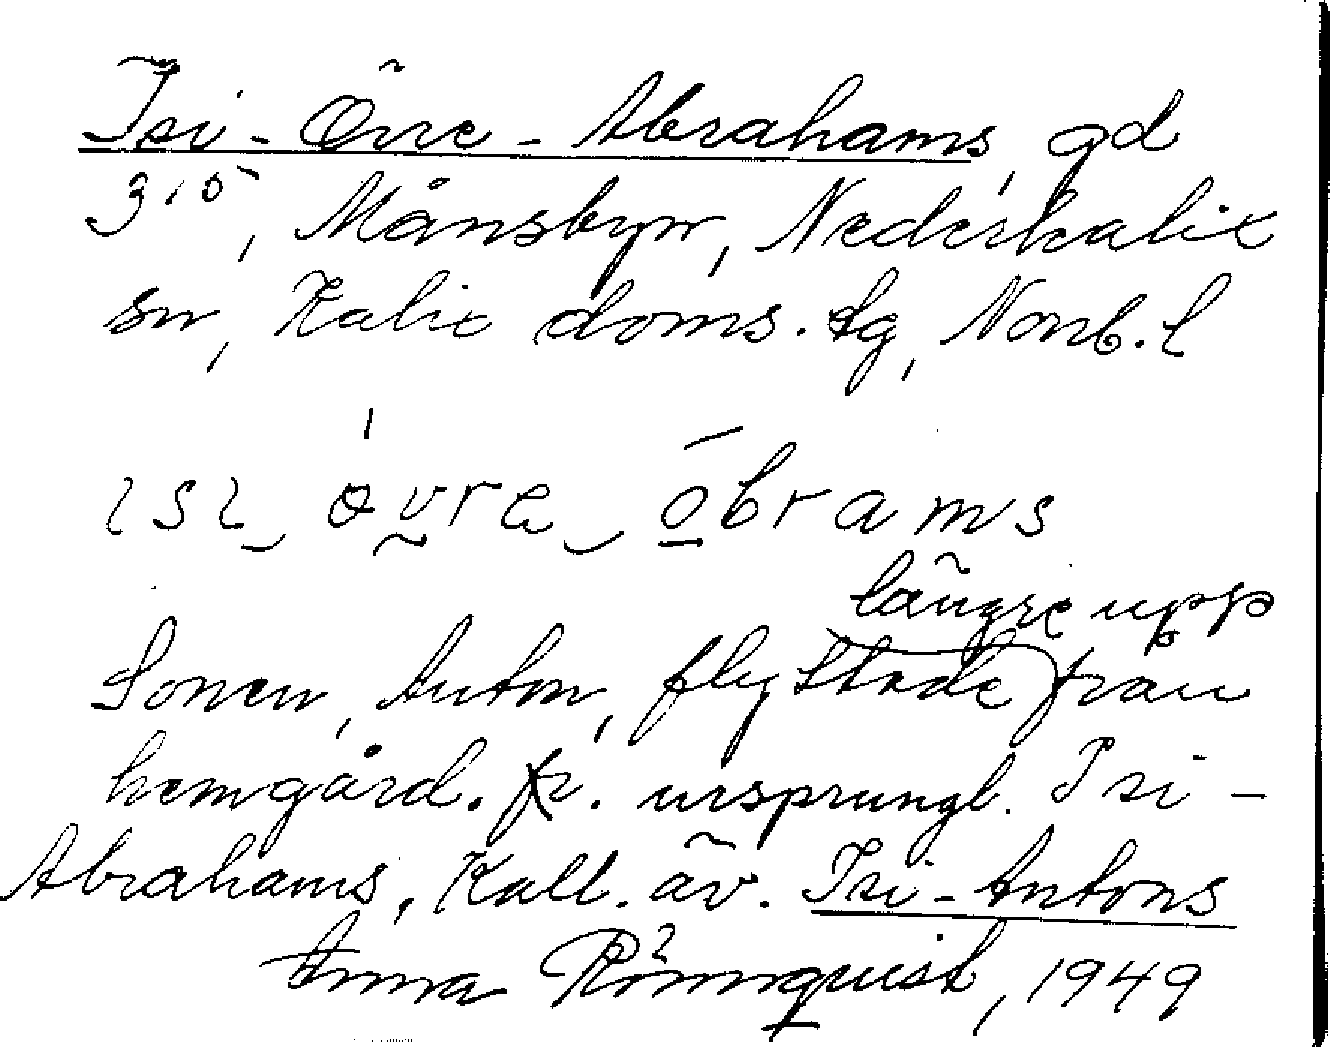 Isi-Övre-Abrahams, gd
3:15, Månsbyn, Nederkalix
sn, Kalix doms. lg, Norrb. l
ısı övre åbrams
längre upp
Sonen, Anton, flyttade från
hemgård. fr. ursprungl. Isi-
Abrahams. Kall. äv. Isi-Antons
Anna Rönnquist, 1949